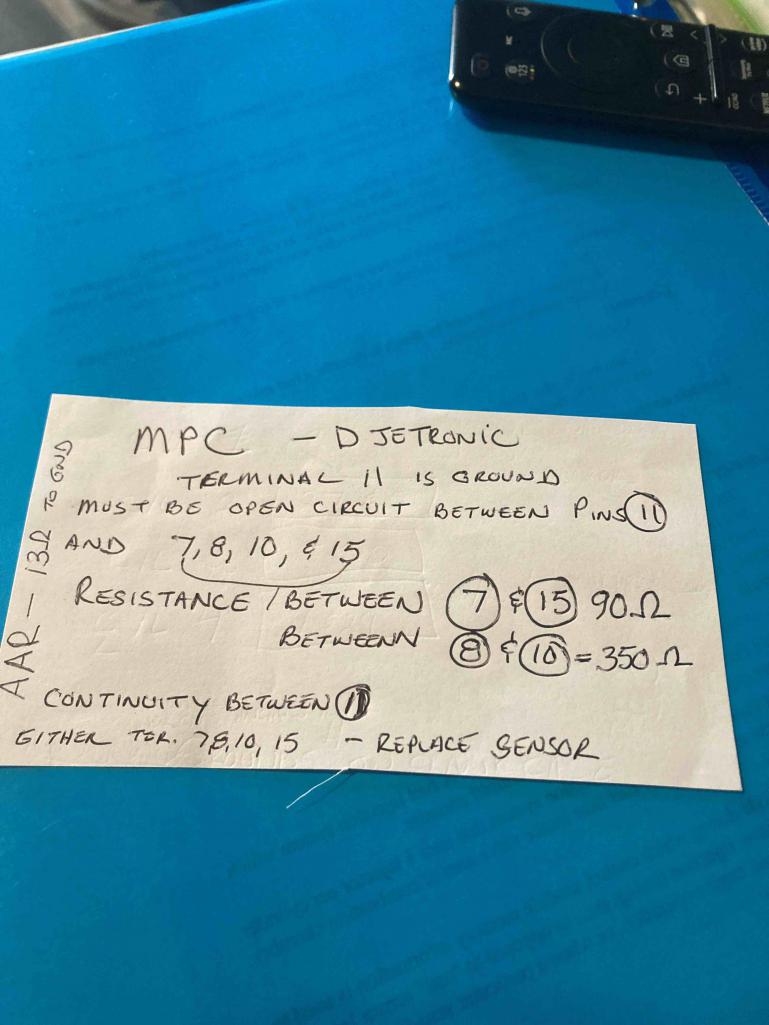 MPC - D JETRONIC
TERMINAL 11 IS GROUND
MUST BE OPEN CIRCUIT BETWEEN PINS 11
AND 7, 8, 10, & 15
RESISTANCE / BETWEEN 7 & 15 90Ω
BETWEENN 8 & 10 = 350Ω
CONTINUITY BETWEEN 11
EITHER TER. 7 8, 10, 15 - REPLACE SENSOR
AAR - 13Ω TO GND
123